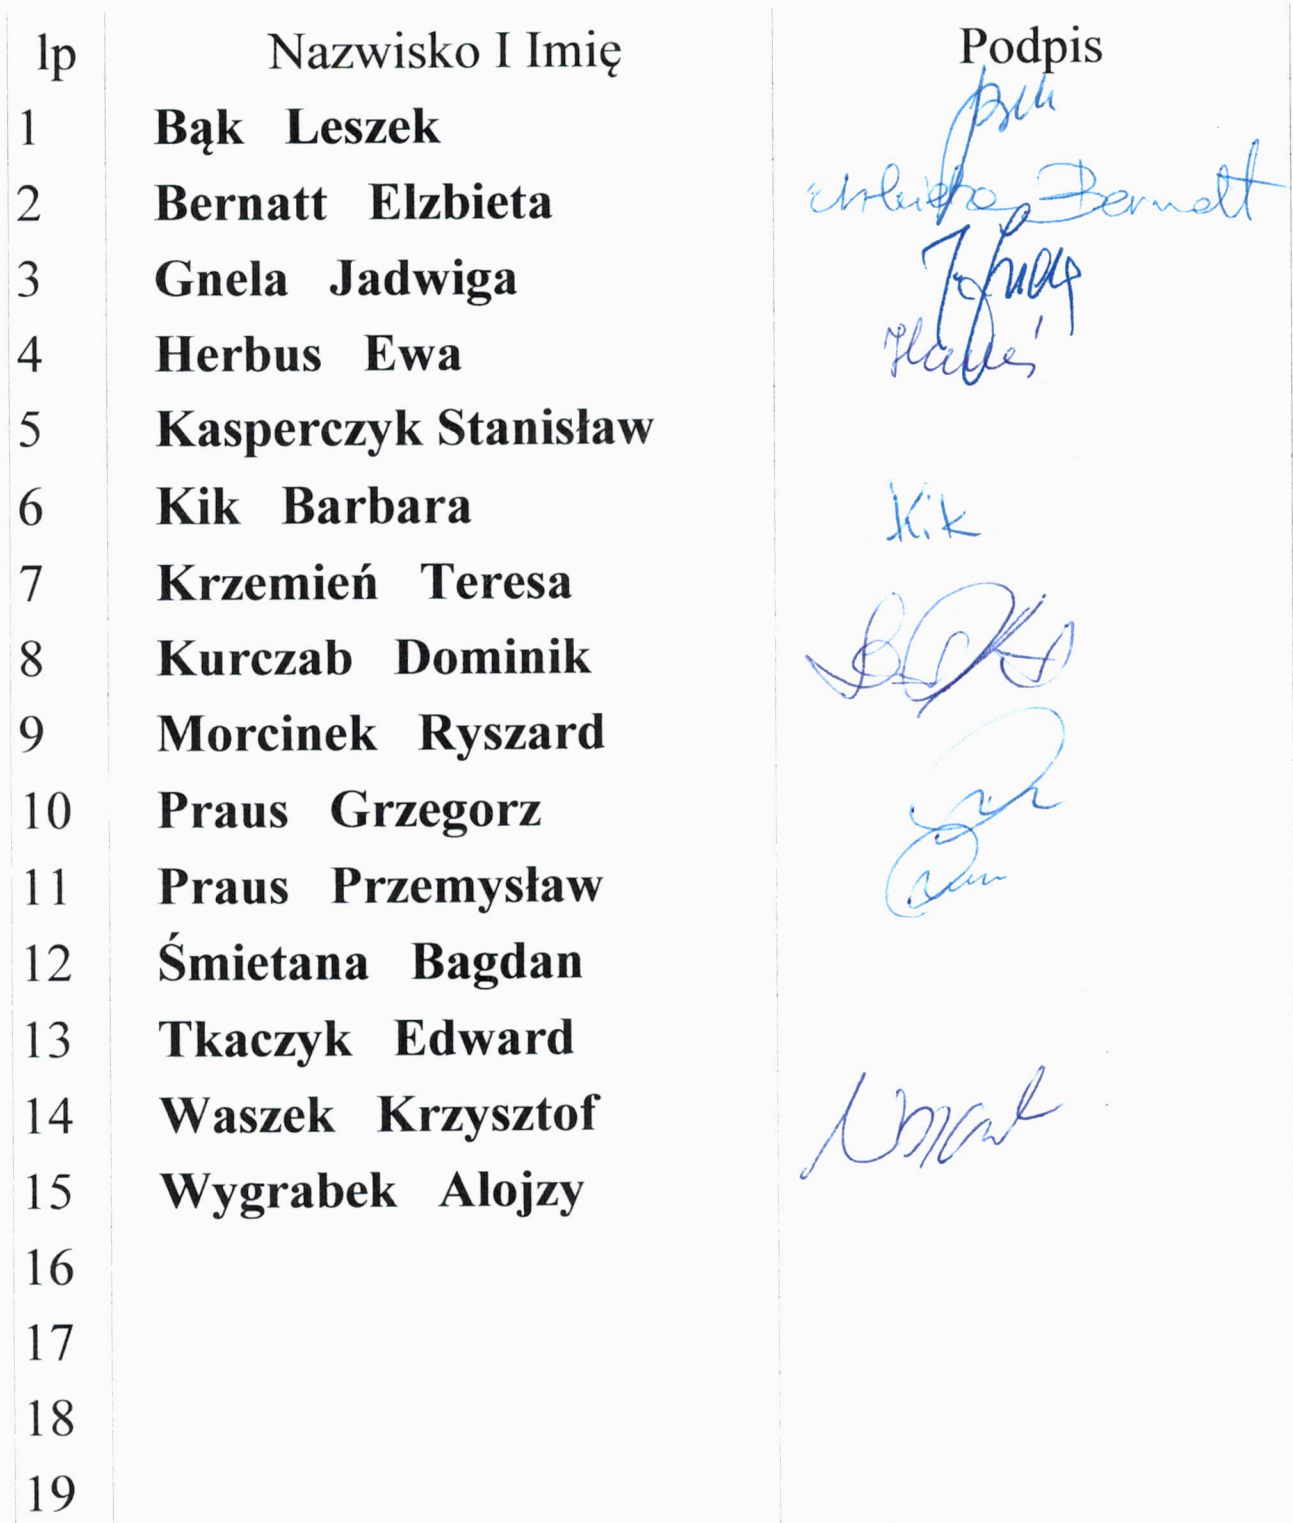 lp Nazwisko I Imię Podpis
1 Bąk Leszek
2 Bernatt Elzbieta Elżbieta Bernatt
3 Gnela Jadwiga
4 Herbus Ewa
5 Kasperczyk Stanisław
6 Kik Barbara Kik
7 Krzemień Teresa
8 Kurczab Dominik
9 Morcinek Ryszard
10 Praus Grzegorz
11 Praus Przemysław
12 Śmietana Bagdan
13 Tkaczyk Edward
14 Waszek Krzysztof
15 Wygrabek Alojzy
16
17
18
19